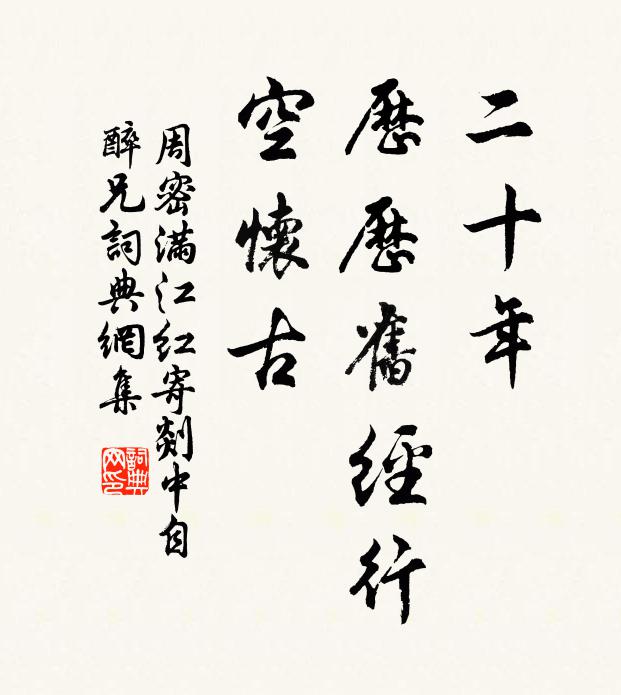 二十年
歷歷舊經行
空懷古
周密滿江红寄剡中自
醉兄詞典網集
詞典网印